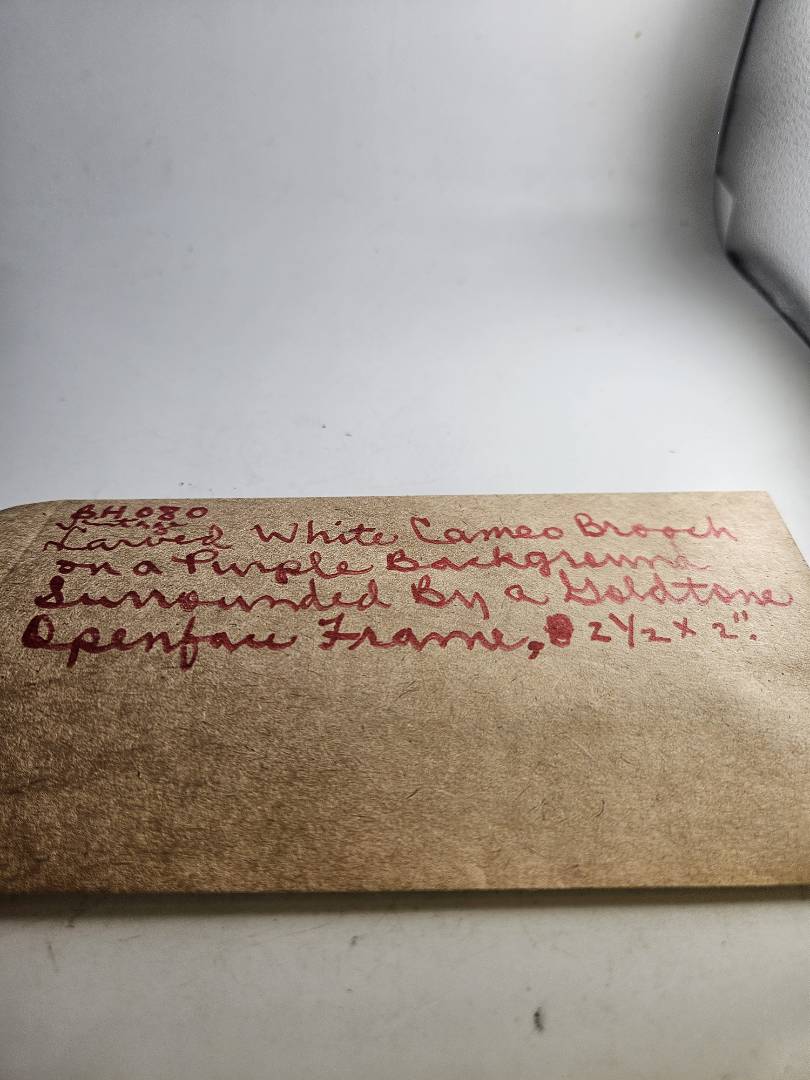 BH080
Vintage
Carved White Cameo Brooch
on a Purple Background
Surrounded By a Goldtone
Openface Frame, 2 1/2 x 2".